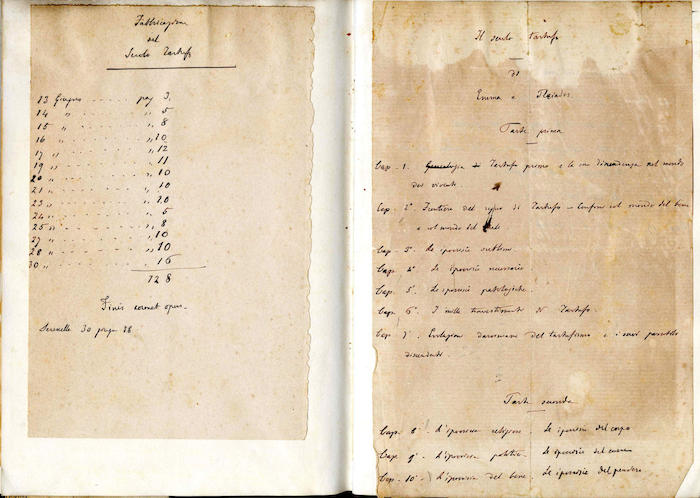 Fabbricazione
del
Secolo Tartufo
13 Giugno pag 3.
14 " " 5
15 " " 8
16 " " 10
17 " " 12
19 " " 11
20 " " 10
21 " " 10
23 " " 20
24 " " 5
25 " " 8
27 " " 10
28 " " 10
30 " " 16
128
Finis coronat opus.
Serenella 30 giugno 88
Il secolo tartufo
di
Emma e Pleiados.
Parte prima
Cap. 1. Genealogia di Tartufo primo e la sua discendenza nel mondo
dei viventi.
Cap. 2° Frontiere del regno di Tartufo – Confini col mondo del bene
e col mondo del male
Cap. 3° Le ipocrisie sublimi.
Cap. 4° Le ipocrisie necessarie
Cap. 5° Le ipocrisie patologiche.
Cap. 6° I mille travestimenti di Tartufo.
Cap. 7° Evoluzione darwiniana del tartufismo e i suoi possibili
discendenti.
Parte seconda
Cap. 8° L'ipocrisia religiosa. Le ipocrisie del corpo
Cap. 9° L'ipocrisia politica. Le ipocrisie del cuore
Cap. 10° L'ipocrisia del bene. Le ipocrisie del pensiero.